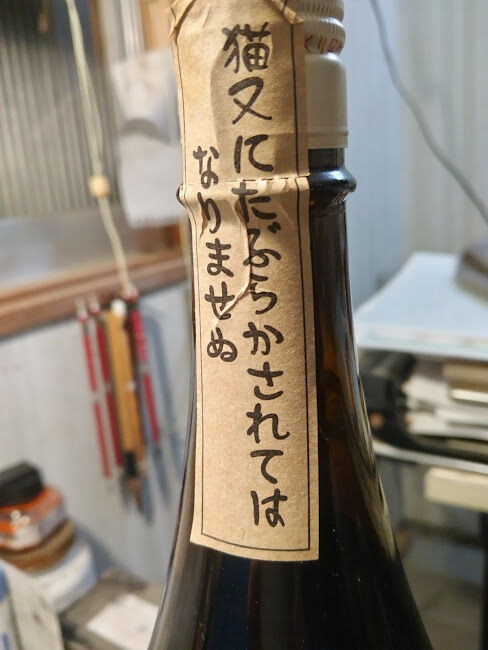 猫又にたぶらかされては
なりませぬ